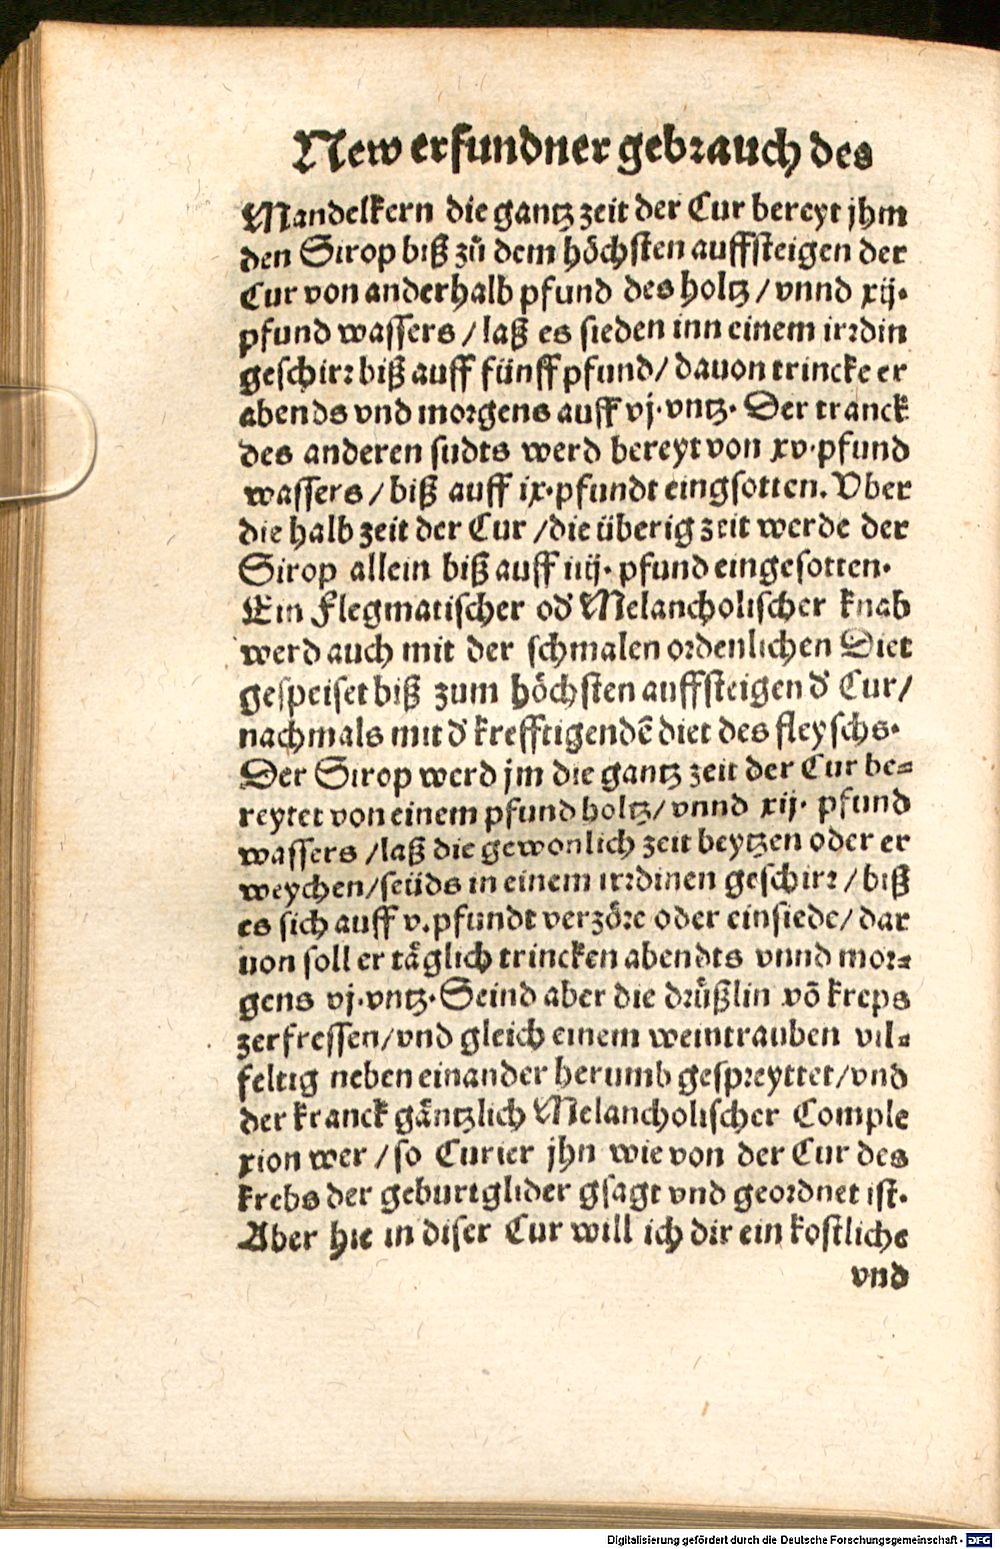 New erfundner gebrauch des
Mandelkern die gantz zeit der Cur bereyt jhm
den Sirop biß zů dem höchsten auffsteigen der
Cur von anderhalb pfund des holtz / vnnd xij.
pfund wassers / laß es sieden inn einem irrdin
geschirr biß auff fünff pfund / dauon trincke er
abends vnd morgens auff vj. vntz. Der tranck
des anderen sudts werd bereyt von xv. pfund
wassers / biß auff ix. pfundt eingsotten. Vber
die halb zeit der Cur / die überig zeit werde der
Sirop allein biß auff iiij. pfund eingesotten.
Ein Flegmatischer od' Melancholischer knab
werd auch mit der schmalen ordenlichen Diet
gespeiset biß zum höchsten auffsteigen d' Cur /
nachmals mit d' krefftigendē diet des fleyschs.
Der Sirop werd jm die gantz zeit der Cur be-
reytet von einem pfund holtz / vnnd xij. pfund
wassers / laß die gewonlich zeit beytzen oder er
weychen / seüds in einem irrdinen geschirr / biß
es sich auff v. pfundt verzöre oder einsiede / dar
uon soll er täglich trincken abendts vnnd mor-
gens vj. vntz. Seind aber die drüßlin vō kreps
zerfressen / vnd gleich einem weintrauben vil-
feltig neben einander herumb gespreyttet / vnd
der kranck gäntzlich Melancholischer Comple
xion wer / so Curier jhn wie von der Cur des
krebs der geburtglider gsagt vnd geordnet ist.
Aber hie in diser Cur will ich dir ein kostliche
vnd
Digitalisierung gefördert durch die Deutsche Forschungsgemeinschaft - DFG